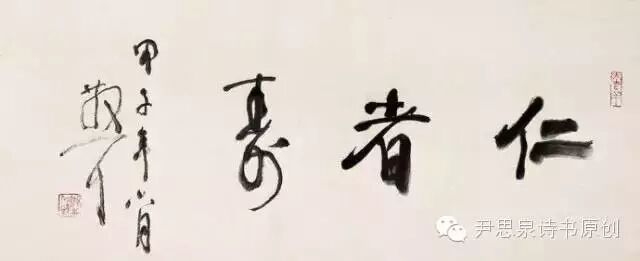 仁者寿
甲子年八月
尹思泉诗书原创